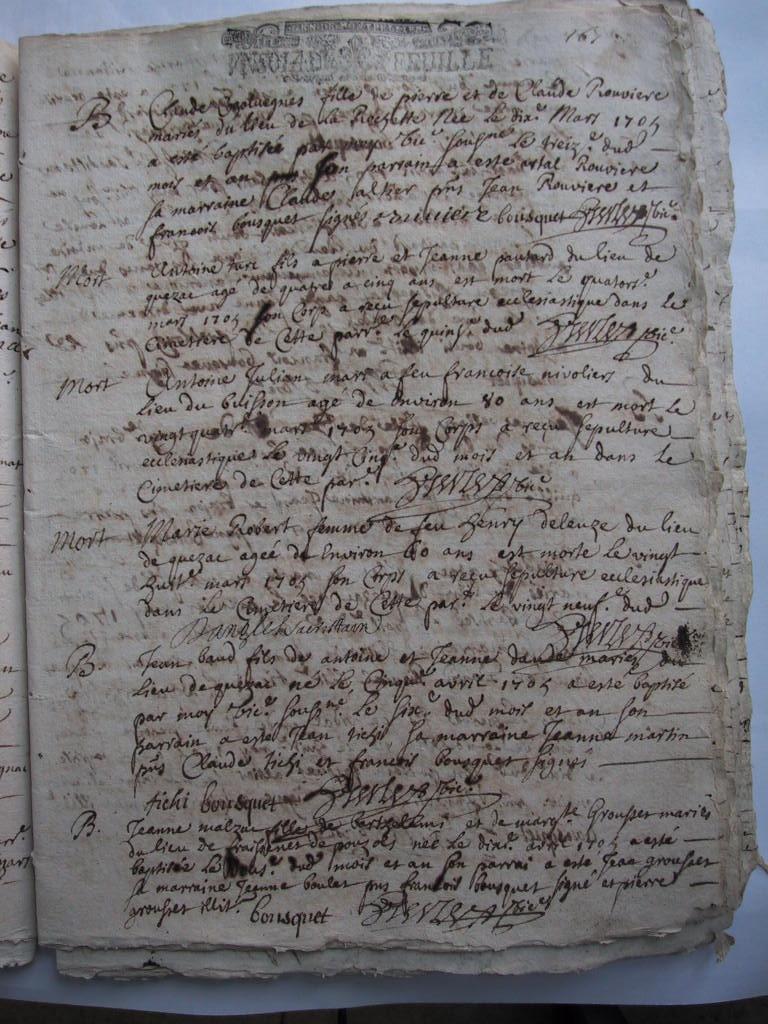 UN SOL LA DE FEUILLE
167
B Claude fille de pierre et de Claude Rouviere
mariés du lieu de la Rochette Née le dix.e Mars 1705
a esté baptisée par moy vic.e sousné le treiz.e dud
mois et an son parrain a esté artal Rouviere
sa marraine Claude pns Jean Rouviere et
francois bousquet signes rouviere bousquet vic.e
Mort Antoine turc fils a pierre et Jeanne pautard du lieu de
quezac agé de quatre a cinq ans est mort le quators.e
mars 1705 son Corp a reçu sepulture ecclesiastique dans le
Cimetiere de Cette parr.e le quinz.e dud vic.e
Mort Antoine Julian mary a feu francoise nivoliers du
Lieu du buisson agé de environ 80 ans est mort le
vingt quatr.e mars 1705 son Corps a reçu sepulture
ecclesiastique le vingt Cinq.e dud mois et an dans le
Cimetiere de Cette par.e vic.e
Mort Marie Robert femme de feu henry deleuze du lieu
de quezac ageé de environ 60 ans est morte le vingt
huit.e mars 1705 son Corps a reçu sepulture ecclesiastique
dans le Cimetiere de Cette par.e le vingt neuf.e dud
vic.e
B. Jean baud fils de antoine et Jeanne daudé mariez du
Lieu de quezac né le Cinqu.e avril 1705 a esté baptisé
par moy vic.e sousne le six.e dud mois et an son
parrain a esté Jean tichi sa marraine Jeanne martin
pns Claude tichi et francois bousquet signés
tichi bousquet vic.e
B. Jeanne malzac fille de berthelemi et de marg.te Grousset mariés
du lieu de fraissinet de pouzols née le dix.e avril 1705 a esté
baptisée le dud mois et an son parrai a esté Jean grousset
sa marraine Jeanne boulet pns francois bousquet signé et pierre
grousset illit.e bousquet vic.e